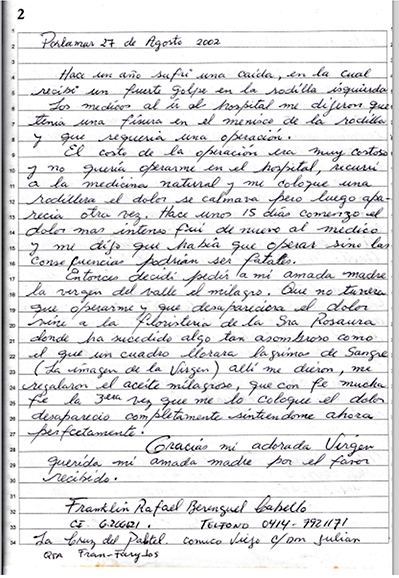 2
Porlamar 27 de Agosto 2002
Hace un año sufri una caida, en la cual
recibi un fuerte golpe en la rodilla isquierda
Los medicos al ir el hospital me dijeron que
tenia una fisura en el menisco de la rodilla
y que requeria una operación.
El costo de la operación era muy costoso
y no queria operarme en el hospital, recurri
a la medicina natural y me coloque una
rodillera el dolor se calmava pero luego apa-
recia otra vez. Hace unos 15 dias comenzo el
dolor mas intenso fui de nuevo al medico
y me dijo que habia que operar sino las
consecuencias podrian ser fatales.
Entonces decidi pedir a mi amada madre
la virgen del valle el milagro. Que no tuviera
que operarme y que desapareciera el dolor
vine a la floristeria de la Sra Rosaura
donde ha sucedido algo tan asombroso como
el que un cuadro llorara lagrimas de Sangre
(La imagen de la Virgen) alli me dieron, me
regalaron el aceite milagroso, que con fe mucha
fe la 3era vez que me lo coloque el dolor
desaparecio completamente sintiendome ahora
perfectamente.
Gracias mi adorada Virgen
querida mi amada madre por el favor
recibido.
Franklin Rafael Berenguel Cabello
CI 6266621. TELFONO 0414-7921171
La Cruz del Pastel. conuco Viejo c/Don Julian
QTA Fran-Farylos